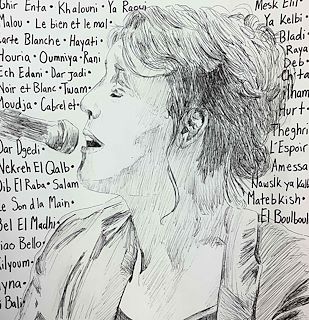 Ghir Enta • Khalouni • Ya Raoui
Malou • Le bien et le mal •
Carte Blanche • Hayati •
Houria • Oumniya • Rani
Ech Edani • Dar Jadi •
Noir et Blanc • Twam •
Moudja • Cabrel et •
Dar Dgedi •
Nekreh El Qalb •
Dib El Raba • Salam
Le Son d la Main •
Bel El Madhi •
Ciao Bello •
Kilyoum •
Bali •
Mesk Elil •
Ya Kelbi •
Bladi •
Raya
Deb •
Ch'ta
Ilham
Hurt •
Theghri
L'Espoir
Amessa
Nawslk ya Kalb
Matebkish •
El Boulboul